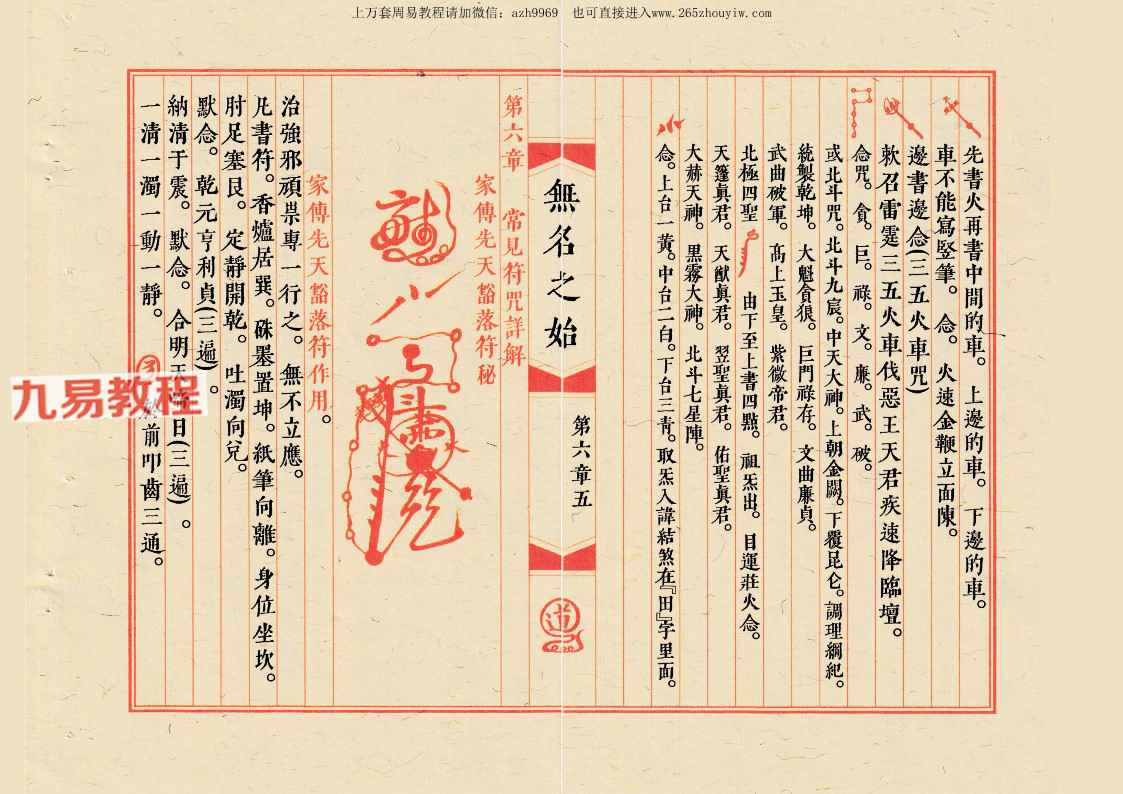 上万套周易教程请加微信：azh9969　也可直接进入www.265zhouyiw.com
先書火再書中間的車。上邊的車。下邊的車。
車不能寫竪筆。念。火速金鞭立面陳。
邊書邊念(三五火車咒)
敕召雷霆三五火車伐惡王天君疾速降臨壇。
念咒。貪。巨。祿。文。廉。武。破。
或北斗咒。北斗九宸。中天大神。上朝金闕。下覆昆仑。調理綱紀。
統製乾坤。大魁貪狼。巨門祿存。文曲廉貞。
武曲破軍。高上玉皇。紫微帝君。
北極四聖　由下至上書四㸃。祖炁出。目運莊火念。
天篷眞君。天猷眞君。翌聖眞君。佑聖眞君。
大赫天神。黑霧大神。北斗七星陣。
念。上台一黃。中台二白。下台三青。取炁入諱結煞在『田』字里面。
無名之始
第六章五
道
第六章　常見符咒詳解
家傳先天豁落符秘
家傳先天豁落符作用。
治強邪頑祟專一行之。無不立應。
凡書符。香爐居巽。硃墨置坤。紙筆向離。身位坐坎。
肘足塞艮。定靜開乾。吐濁向兌。
默念。乾元亨利貞(三遍)。
納清于震。默念。合明天帝日(三遍)。
一清一濁一動一靜。
前叩齒三通。
九易教程